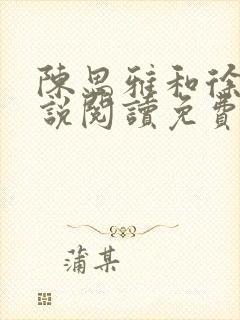 陳思雅和徐
說閱讀免費
蒲某